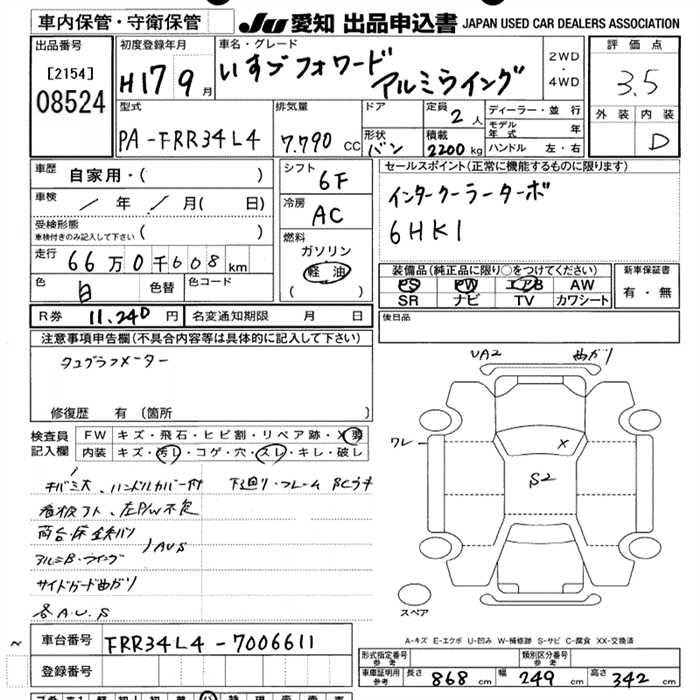 車内保管・守衛保管 JU 愛知 出品申込書 JAPAN USED CAR DEALERS ASSOCIATION
出品番号 [2154] 08524
初度登録年月 H17 9月
車名・グレード いすゞフォワード アルミウイング
2WD・4WD
評価点 3.5
外装 内装 D
型式 PA-FRR34L4
排気量 7.790 CC
ドア 形状 バン
定員 2人
積載 2200kg
ディーラー・並行
モデル年式 年
ハンドル 左・右
車歴 自家用・( )
車検 / 年 / 月( 日)
受検形態 車検付きのみ記入して下さい ( )
走行 66万0千608km
色 白 色替 色コード
シフト 6F
冷房 AC
燃料 ガソリン 軽油 ( )
セールスポイント(正常に機能するものに限ります)
インタークーラーターボ
6HK1
装備品(純正品に限り○をつけてください)
PS PW エアB AW
SR ナビ TV カワシート
新車保証書 有・無
R券 11.240円 名変通知期限 月 日
後日品
注意事項申告欄(不具合内容等は具体的に記入して下さい)
タコグラフメーター
修復歴 有(箇所 )
検査員記入欄
FW キズ・飛石・ヒビ割・リペア跡・X
内装 キズ・汚レ・コゲ・穴・スレ・キレ・破レ
キバミ大、ハンドルカバー付 下廻り・フレーム
看板フト、左P/W不良
荷台床鉄板
アルミB・ウイング AUS
サイドガード曲ガリ
各A.U.S
UA2 曲ガリ
ワレ
X
S2
スペア
A-キズ E-エクボ U-凹み W-補修跡 S-サビ C-腐食 XX-交換済
車台番号 FRR34L4-7006611
登録番号
形式指定番号 参考 類別区分番号 参考
車庫証明用 参考 長さ 868cm 幅 249cm 高さ 342cm